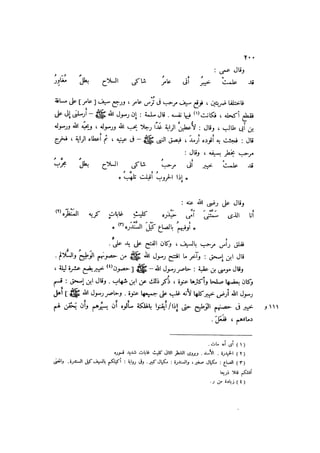 ٢٠٠
وقال عمى :
قد علمتْ خيبرُ أنى عامرُ    شاكى السلاح بطلٌ مُغَاوِرُ
فاختلفا ضربتين ، فوقع سيف مرحب فى تُرْس عامر ، ورجع سيف [ عامر ] على ساقه
فقطع أكحله ، فكانت(١) فيها نفسه . قال سلمة : إن رسول الله ﷺ – أرسلنى إلى على
بن أبى طالب ، وقال : لأعطين الراية غدًا رجلا يحب الله ورسوله ، ويحبّه الله ورسوله
قال : فجئت به أقوده أرمدَ ، فبصق النبى ﷺ – فى عينيه ، ثم أعطاه الراية ، فخرج
مرحب يخطر بسيفه ، وقال :
قد علمتْ خيبر أنى مرحبُ    شاكى السلاح بطلٌ مجرَّبُ
* إذا الحروبُ أقبلت تلهَّبُ *
وقال على رضى الله عنه :
أنا الذى سَمَّتْنَى أمّى حَيْدَره    كليث غاباتٍ كريه المنْظَره(٢)
* أوفيهمُ بالصاع كيلَ السَّنْدَره(٣) *
ففلق رأس مرحب بالسيف ، وكان الفتح على يد علىّ .
قال ابن إسحق : وآخر ما افتتح رسول الله ﷺ من حصونهم الوَطِيحُ والسُّلالم .
وقال موسى بن عقبة : حاصر رسول الله – ﷺ [ حصون ](٤) خيبر بضع عشرة ليلة ،
وكان بعضها صلحا وأكثرها عنوة ، ذكر ذلك عن ابن شهاب . وقال ابن إسحق : قسم
رسول الله أرض خيبر كلها لأنه غلب على جميعها عنوة . وحاصر رسول الله ﷺ [ أهل
١١١ * خيبر فى حصنيهم الوَطيح حتى إذا / أيقنوا بالهلكة سألوه أن يسيِّرهم وأن يُحْقن لهم
دماءهم ، ففعلَ .
( ١ ) أى أنه مات .
( ٢ ) الحيدرة : الأسد . ويروى الشطر الثانى كليث غابات شديد قسوره
( ٣ ) الصاع : مكيال صغير ، والسندرة : مكيال كبير . وفى رواية : أكيلكم بالسيف كيل السندرة . والمعنى
أقتلكم قتلا ذريعا
( ٤ ) زيادة من ر .